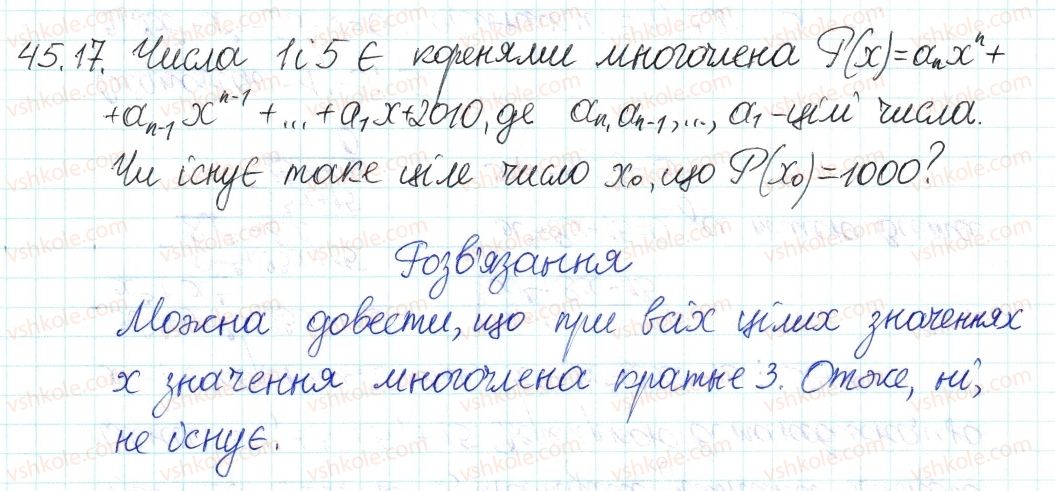 45.17. Числа 1 і 5 є коренями многочлена P(x)=aₙxⁿ+
+aₙ₋₁xⁿ⁻¹+...+a₁x+2010, де aₙ, aₙ₋₁,..., a₁-цілі числа.
Чи існує таке ціле число x₀, що P(x₀)=1000?
Розв'язання
Можна довести, що при всіх цілих значеннях
x значення многочлена кратне 3. Отже, ні,
не існує.